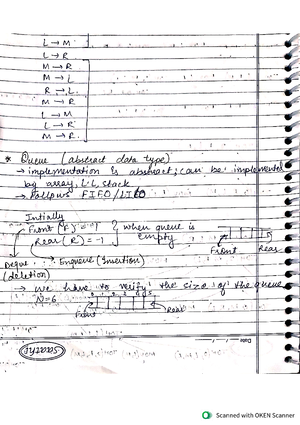 L → M
L → R
M → R
M → L
R → L
M → R
L → M
L → R
M → R
* Queue (abstract data type)
→ implementation is abstract; can be implemented
by array, L.L, stack
→ Follows FIFO/LILO
Intially
Front (F) = -1
Rear (R) = -1
when queue is
empty
Front Rear
Enqueue (Insertion)
Deque
(deletion)
→ we have to verify the size of the queue
N=6
0 1 2 3 4 5
Front Rear
Saarthi
Date
Scanned with OKEN Scanner